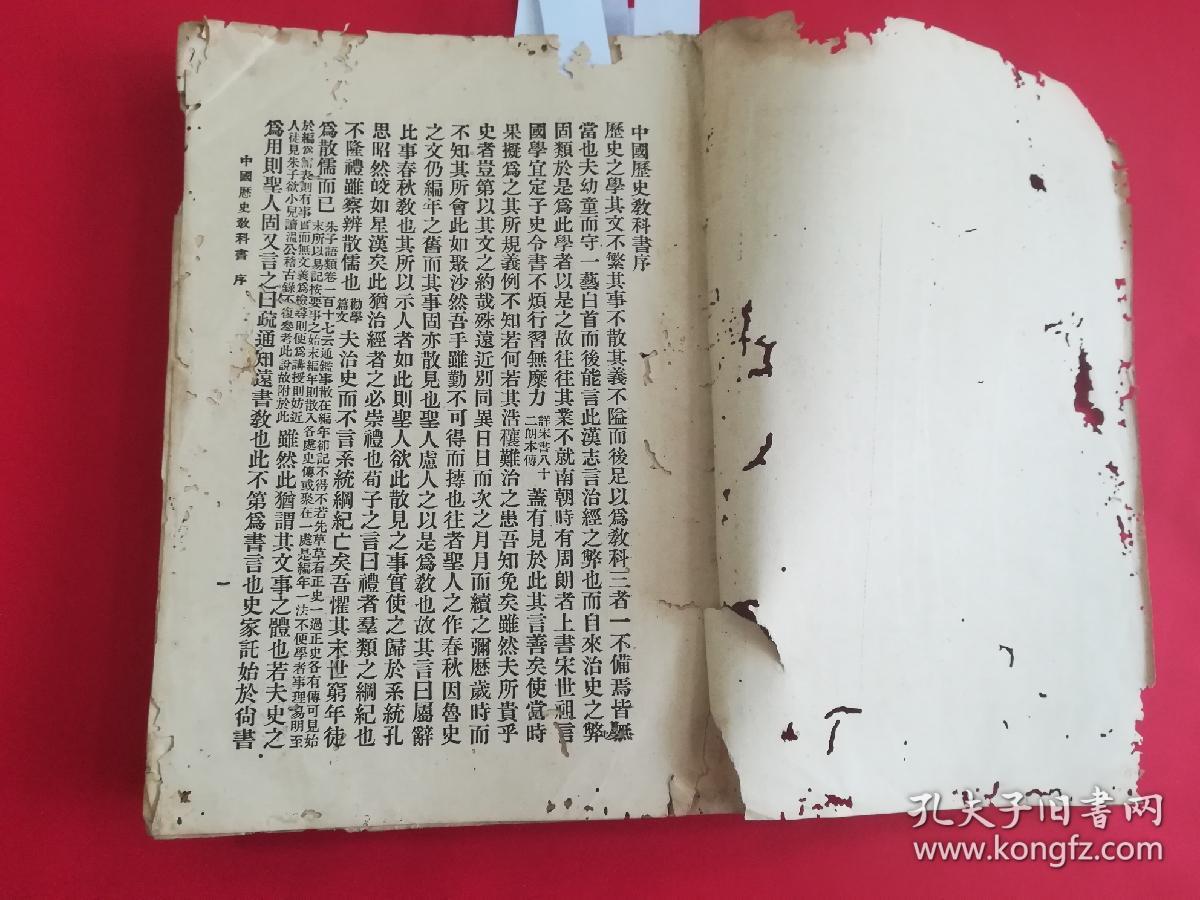 中國歷史教科書序
歷史之學其文不繁其事不散其義不隘而後足以爲教科三者一不備焉皆無
當也夫幼童而守一藝白首而後能言此漢志言治經之弊也而自來治史之弊
固類於是爲此學者以是之故往往其業不就南朝時有周朗者上書宋世祖言
國學宜定子史令書不煩行習無糜力詳宋書八十二朗本傳蓋有見於此其言善矣使當時
果擬爲之其所規義例不知若何若其浩穰難治之患吾知免矣雖然夫所貴乎
史者豈第以其文之約哉殊遠近別同異日日而次之月月而續之彌歷歲時而
不知其所會此如聚沙然吾手雖勤不可得而摶也往者聖人之作春秋因魯史
之文仍編年之舊而其事固亦散見也聖人慮人之以是爲教也故其言曰屬辭
比事春秋教也其所以示人者如此則聖人欲比散見之事實使之歸於系統孔
思昭然皎如星漢矣此猶治經者之必崇禮也荀子之言曰禮者羣類之綱紀也
不隆禮雖察辨散儒也勸學篇文夫治史而不言系統綱紀亡矣吾懼其末世窮年徒
爲散儒而已朱子語類卷一百十七云通鑑事散在編年卻記不得不若先草草看正史一過正史各有傳可見始
末所以易記按要事之始末編年則散入各處史傳或聚在一處是編年一法不便學者事理易明至
於編爲年表則有事實而無文義爲檢尋則便爲講授則妨近
人徒見朱子欲小兒讀溫公稽古錄不復參考此說故附於此雖然此猶謂其文事之體也若夫史之
爲用則聖人固又言之曰疏通知遠書教也此不第爲書言也史家託始於尙書
中國歷史教科書 序
一
孔夫子旧书网
www.kongfz.com